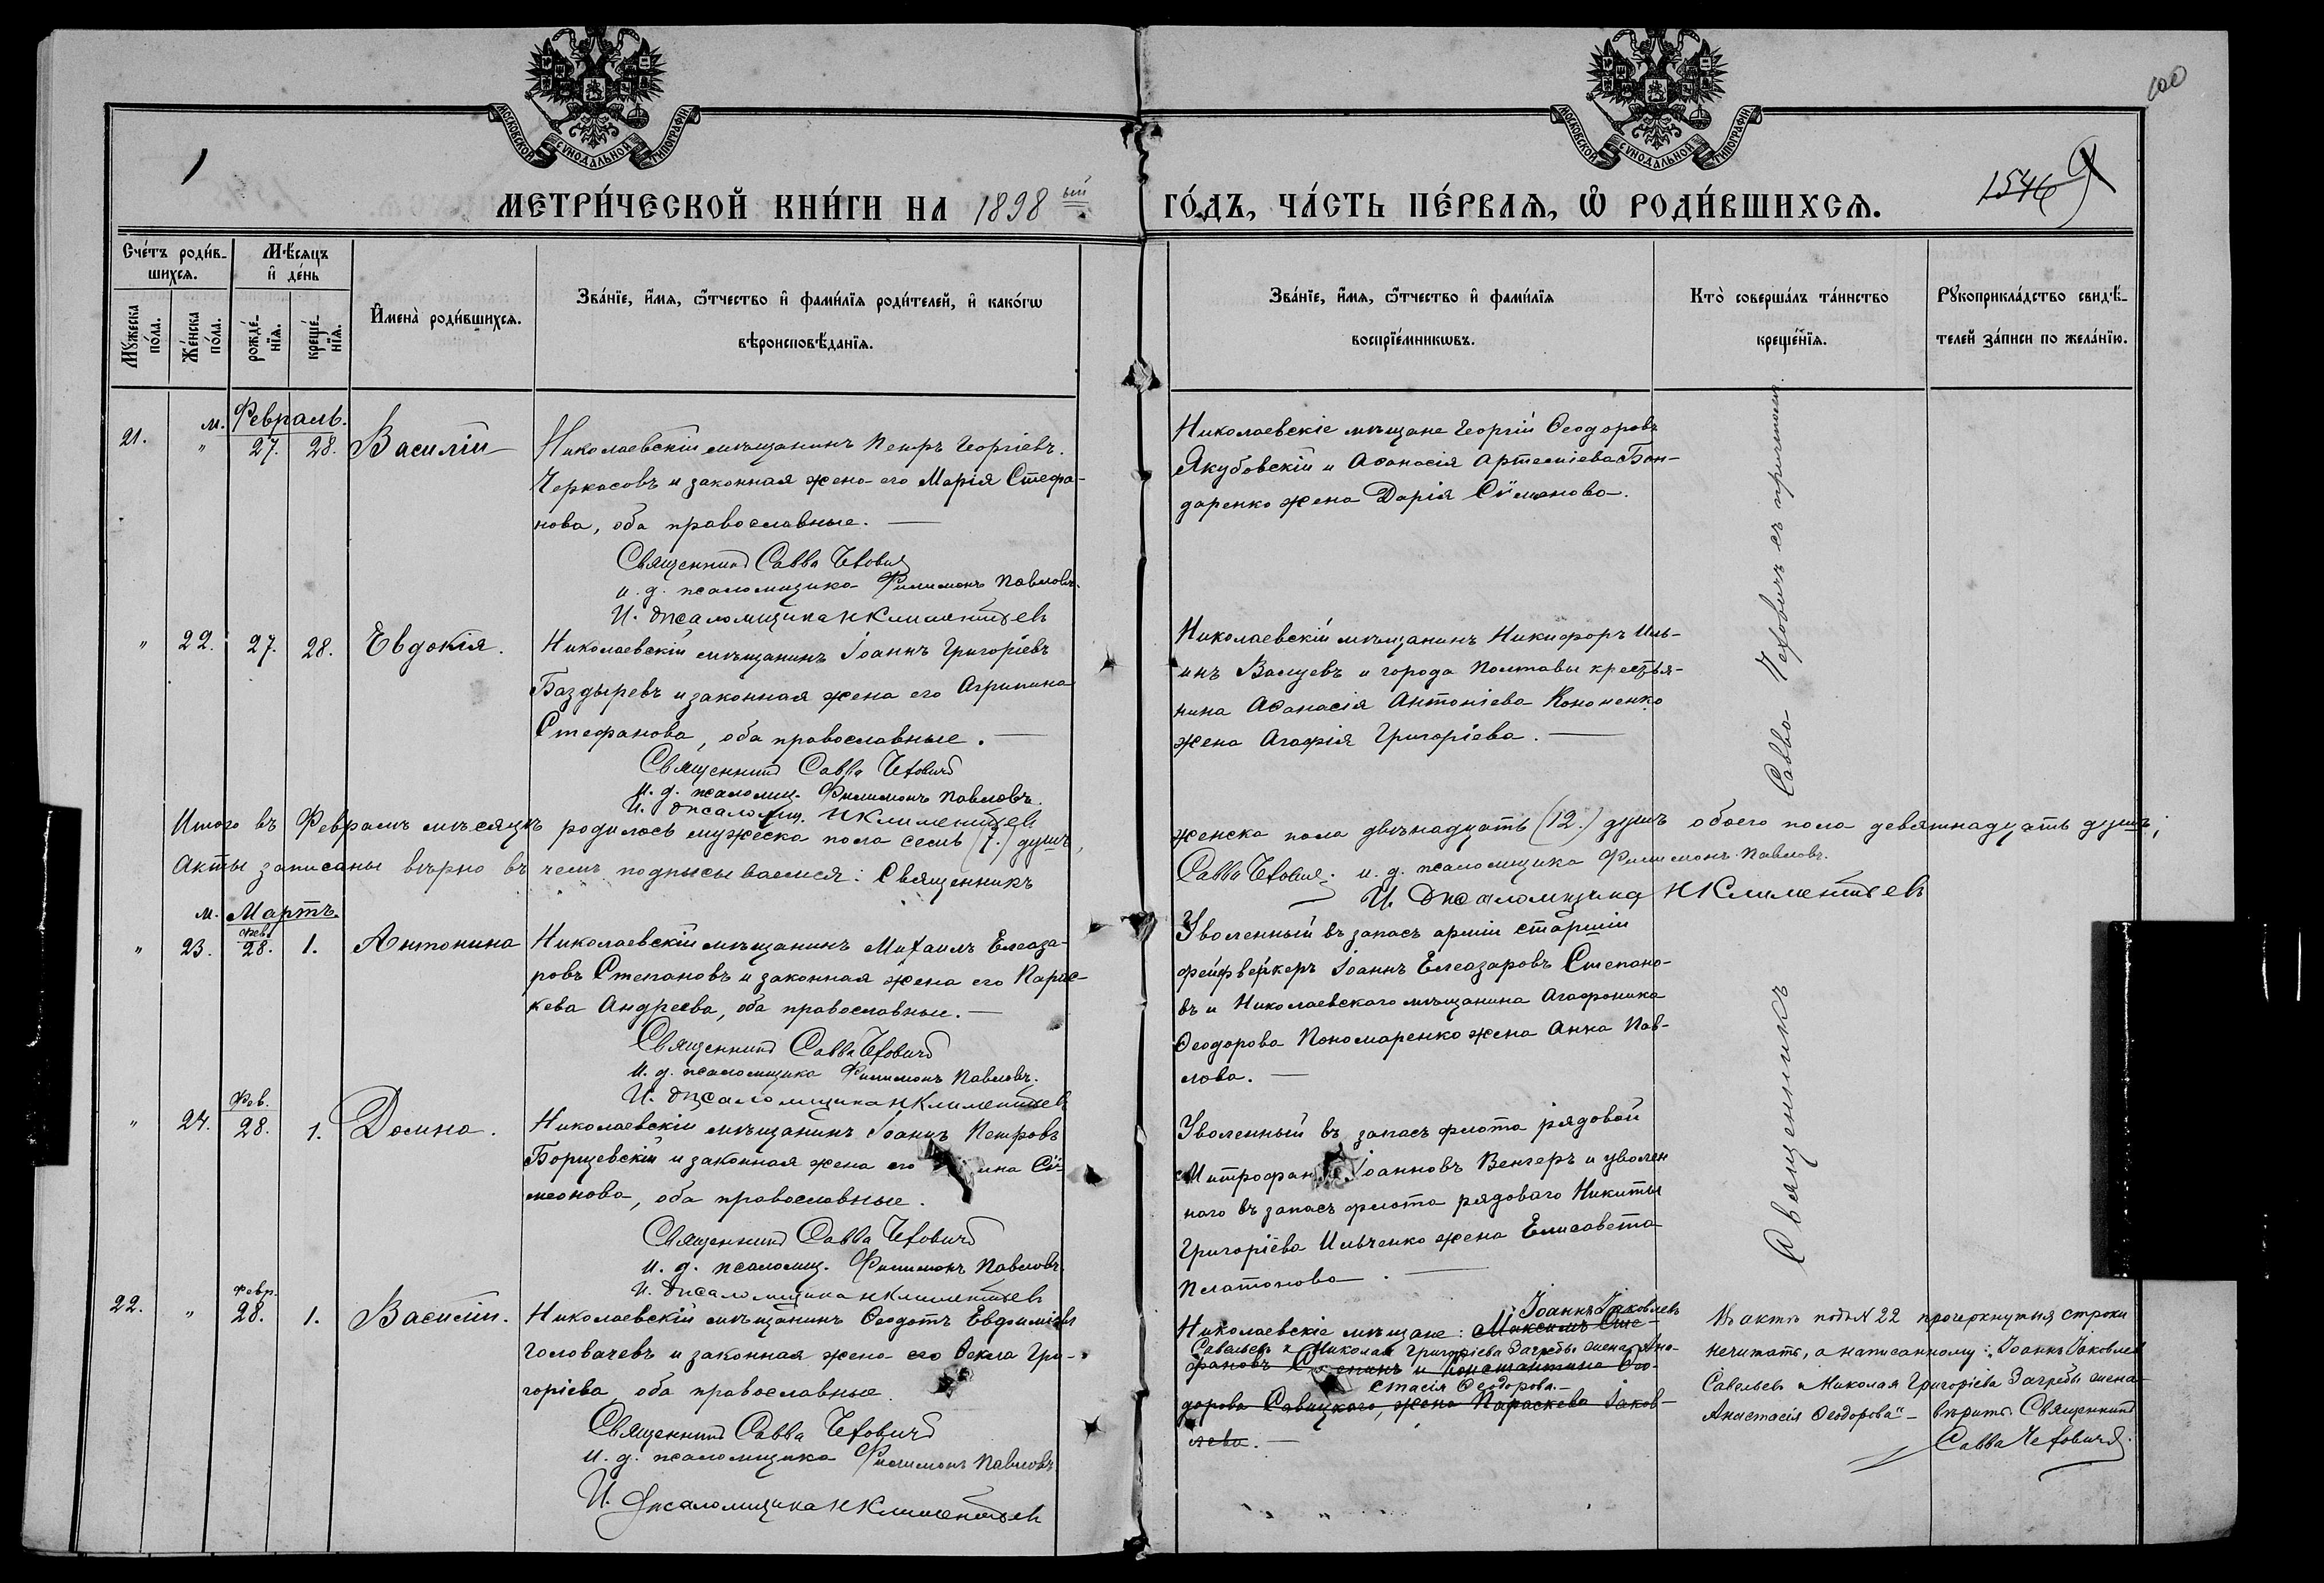 МОСКОВСКОЙ СѴНОДАЛЬНОЙ ТИПОГРАФІИ
МОСКОВСКОЙ СѴНОДАЛЬНОЙ ТИПОГРАФІИ
100
1
1546
9
МЕТРИ́ЧЕСКОЙ КНИ́ГИ НА 1898 ый ГО́ДЪ, ЧА́СТЬ ПЕ́РВАѦ, Ѡ РОДИ́ВШИХСѦ.
Сче́тъ роди́вшихсѧ.
Мꙋ́жеска по́ла.
Же́нска по́ла.
Мѣ́сѧцъ и҆ де́нь
рожде́нїѧ.
креще́нїѧ.
И҆мена̀ роди́вшихсѧ.
Зва́нїе, и҆́мѧ, ѻ҆́тчество и҆ фами́лїѧ роди́телей, и҆ како́гѡ
вѣроисповѣ́данїѧ.
Зва́нїе, и҆́мѧ, ѻ҆́тчество и҆ фами́лїѧ
воспрїе́мникѡвъ.
Кто̀ соверша́лъ та́инство
креще́нїѧ.
Рꙋкоприкла́дство свидѣ́-
телей за́писи по жела́нїю.
м. Февраль.
21. " 27. 28. Василій
Николаевскій мѣщанинъ Петръ Георгіевъ
Черкасовъ и законная жена его Марія Стефа-
нова, оба православные. —
Священникъ Савва Чеховичъ
и. д. псаломщика Филимонъ Павловъ.
И. д псаломщика Н Климентьевъ
Николаевскіе мѣщане Георгій Ѳеодоровъ
Якубовскій и Аѳанасія Артеміева Бон-
даренко жена Дарія Симеонова.
" 22. 27. 28. Евдокія.
Николаевскій мѣщанинъ Іоаннъ Григоріевъ
Баздыревъ и законная жена его Агрипина
Стефанова, оба православные. —
Священникъ Савва Чеховичъ
и. д. псаломщ. Филимонъ Павловъ.
И. д псаломщ. Н Климентьевъ
Николаевскій мѣщанинъ Никифоръ Иль-
инъ Валуевъ и города Полтавы крестья-
нина Аѳанасія Антоніева Кононенко
жена Агафія Григоріева. —
Итого въ Февралѣ мѣсяцѣ родилось мужеска пола семь (7.) душъ,
женска пола двѣнадцать (12.) душъ обоего пола девятнадцать душъ;
Акты записаны вѣрно въ чемъ подписываемся: Священникъ
Савва Чеховичъ; и. д. псаломщика Филимонъ Павловъ.
И. д псаломщика Н Климентьевъ
м. Мартъ.
" 23. Фев. 28. 1. Антонина
Николаевскій мѣщанинъ Михаилъ Елеаза-
ровъ Степановъ и законная жена его Парас-
кева Андреева, оба православные. —
Священникъ Савва Чеховичъ
И. д. псаломщика Филимонъ Павловъ.
И. д псаломщика Н Климентьевъ
Уволенный въ запасъ арміи старшій
фейфвейкеръ Іоаннъ Елеазаровъ Степано-
въ и Николаевскаго мѣщанина Агафоника
Ѳеодорова Пономаренко жена Анна Пав-
лова. —
" 24. Фев. 28. 1. Домна.
Николаевскій мѣщанинъ Іоаннъ Петровъ
Борщевскій и законная жена его Си-
меонова, оба православные.
Священникъ Савва Чеховичъ
и. д. псаломщ. Филимонъ Павловъ.
И. д псаломщика Н Климентьевъ
Уволенный въ запасъ флота рядовой
Митрофанъ Іоанновъ Венгеръ и уволен
наго въ запасъ флота рядоваго Никиты
Григоріева Ильченко жена Елисавета
Платонова. —
22. " Февр. 28. 1. Василій.
Николаевскій мѣщанинъ Ѳеодотъ Евфиміевъ
Головачевъ и законная жена его Ѳекла Гри-
горіева, оба православные.
Священникъ Савва Чеховичъ
и. д. псаломщика Филимонъ Павловъ
И. д псаломщика Н Климентьевъ
Іоаннъ Іаковлевъ
Николаевскіе мѣщане: Максимъ Сте-
Савельевъ и Николая Григоріева Загребы жена Ана-
фановъ и Константина Ѳео-
стасія Ѳеодорова. —
дорова Савицкаго, жена Параскева Іаков-
лева. —
Священникъ Савва Чеховичъ съ причтомъ.
Въ актѣ подъ N 22 прочеркнутыя строки
нечитать, а написанному: "Іоаннъ Іаковлев
Савельевъ и Николая Григоріева Загребы жена
Анастасія Ѳеодорова" — вѣрить. Священникъ
Савва Чеховичъ.